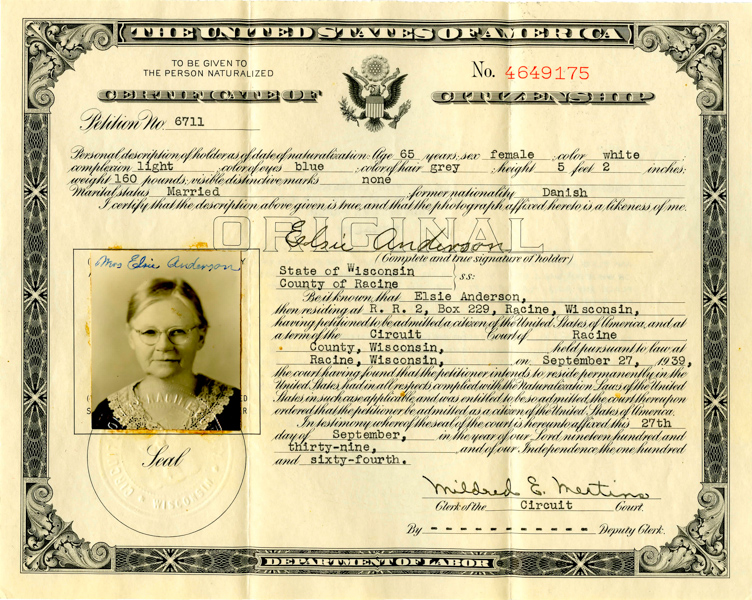 THE UNITED STATES OF AMERICA
TO BE GIVEN TO
THE PERSON NATURALIZED
No. 4649175
CERTIFICATE OF CITIZENSHIP
Petition No. 6711
Personal description of holder as of date of naturalization: Age 65 years; sex female color white ;
complexion light color of eyes blue color of hair grey ; height 5 feet 2 inches;
weight 160 pounds; visible distinctive marks none
Marital status Married former nationality Danish
I certify that the description above given is true, and that the photograph affixed hereto is a likeness of me.
ORIGINAL
Elsie Anderson
(Complete and true signature of holder)
Mrs Elsie Anderson
State of Wisconsin
County of Racine
} ss:
Be it known, that Elsie Anderson,
then residing at R. R. 2, Box 229, Racine, Wisconsin,
having petitioned to be admitted a citizen of the United States of America, and at
a term of the Circuit Court of Racine
County, Wisconsin, held pursuant to law at
Racine, Wisconsin, on September 27, 1939,
the court having found that the petitioner intends to reside permanently in the
United States, had in all respects complied with the Naturalization Laws of the United
States in such case applicable, and was entitled to be so admitted, the court thereupon
ordered that the petitioner be admitted as a citizen of the United States of America.
In testimony whereof the seal of the court is hereunto affixed this 27th
day of September, in the year of our Lord nineteen hundred and
thirty-nine, and of our Independence the one hundred
and sixty-fourth.
Seal
WISCONSIN
Mildred E. Mertins
Clerk of the Circuit Court.
By - - - - - - - - - - - Deputy Clerk.
DEPARTMENT OF LABOR